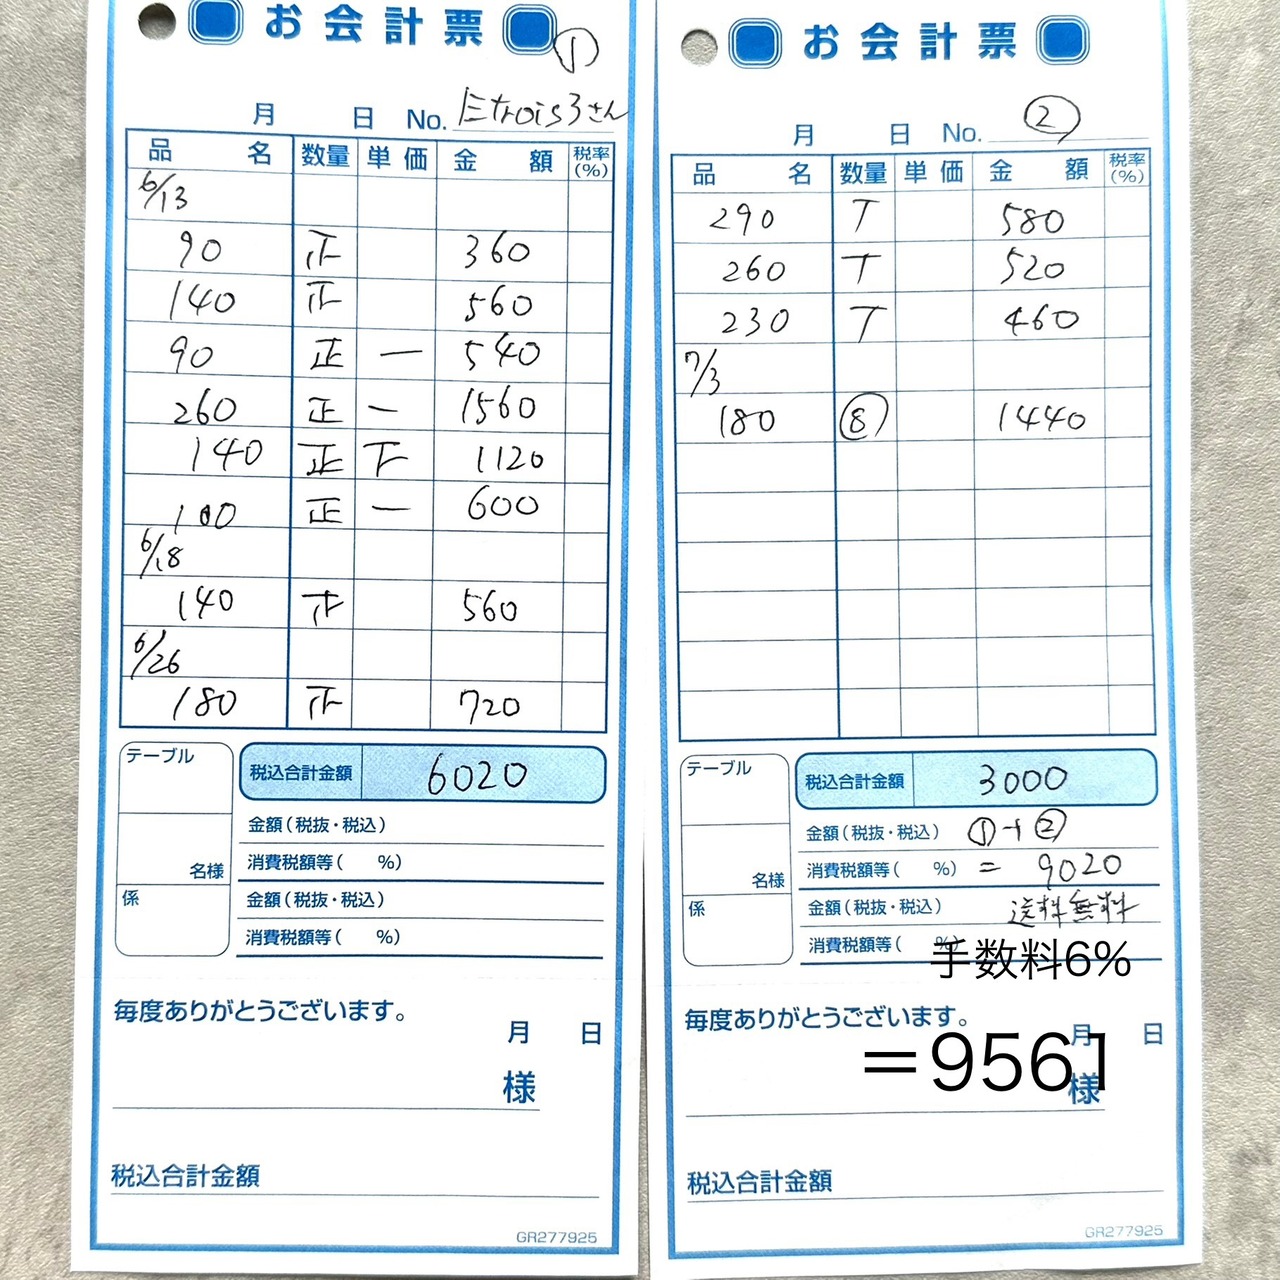 お会計票
①
月 日 No. Etrois3さん
品名 数量 単価 金額 税率(%)
6/13
90 正 360
140 正 560
90 正 一 540
260 正 一 1560
140 正 下 1120
100 正 一 600
6/18
140 正 560
6/26
180 正 720
テーブル
税込合計金額 6020
金額(税抜・税込)
名様
消費税額等( %)
係
金額(税抜・税込)
消費税額等( %)
毎度ありがとうございます。
月 日
様
税込合計金額
GR277925
お会計票
月 日 No. ②
品名 数量 単価 金額 税率(%)
290 T 580
260 T 520
230 T 460
7/3
180 ⑧ 1440
テーブル
税込合計金額 3000
金額(税抜・税込) ①+②
名様
消費税額等( %) = 9020
係
金額(税抜・税込) 送料無料
消費税額等( %)
手数料6%
毎度ありがとうございます。
月 日
=9561
様
税込合計金額
GR277925